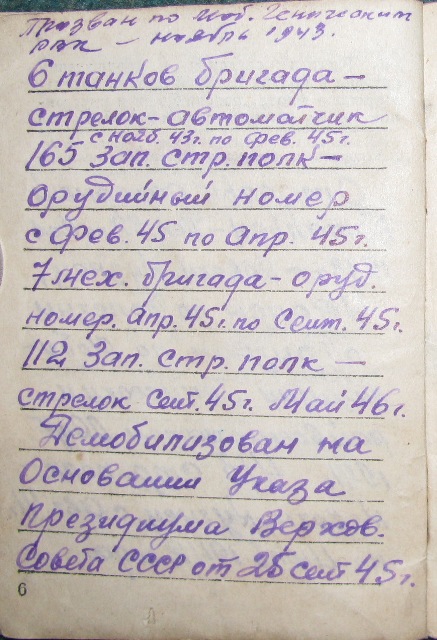 Призван по моб. Геническим
РВК - ноябрь 1943.
6 танков бригада -
стрелок-автоматчик
с нояб. 43г. по фев. 45г.
165 Зап. стр. полк -
орудийный номер
с фев. 45 по апр. 45г.
7 мех. бригада - оруд.
номер. апр. 45г. по Сент. 45г.
112 Зап. стр. полк -
стрелок Сент. 45г. Май 46г.
Демобилизован на
Основании Указа
Президиума Верхов.
Совета СССР от 25 сент 45г.
6